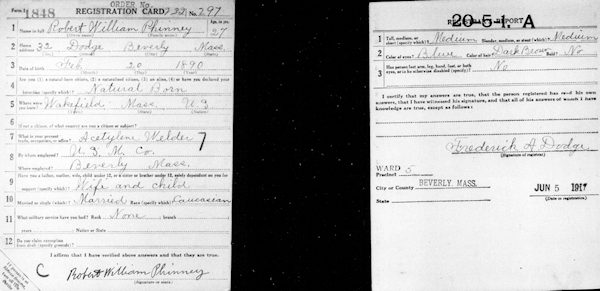 Form 1 1848 REGISTRATION CARD 232 No. 297
ORDER No.
1 Name in full Robert William Phinney Age, in yrs. 27
2 Home address 32 Dodge Beverly Mass.
3 Date of birth Feb 20 1890
4 Are you (1) a natural-born citizen, (2) a naturalized citizen, (3) an alien, (4) or have you declared your intention (specify which)? Natural Born
5 Where were you born? Wakefield, Mass. U.S
6 If not a citizen, of what country are you a citizen or subject?
7 What is your present trade, occupation, or office? Acetyline Welder 7
8 By whom employed? U. S. M. Co.
Where employed? Beverly Mass.
9 Have you a father, mother, wife, child under 12, or a sister or brother under 12, solely dependent on you for support (specify which)? Wife and child
10 Married or single (which)? Married Race (specify which)? Caucasean
11 What military service have you had? Rank None branch
years Nation or State
12 Do you claim exemption from draft (specify grounds)?
I affirm that I have verified above answers and that they are true.
C Robert William Phinney
(Signature or mark)
20-5-1. A
REGISTRAR'S REPORT
1 Tall, medium, or short (specify which)? Medium Slender, medium, or stout (which)? Medium
2 Color of eyes? Blue Color of hair? Dark Brown Bald? No
3 Has person lost arm, leg, hand, foot, or both eyes, or is he otherwise disabled (specify)? No
I certify that my answers are true, that the person registered has read his own answers, that I have witnessed his signature, and that all of his answers of which I have knowledge are true, except as follows:
Frederick A. Dodge
(Signature of registrar)
WARD 5
Precinct
City or County BEVERLY, MASS.
State
JUN 5 1917
(Date of registration)